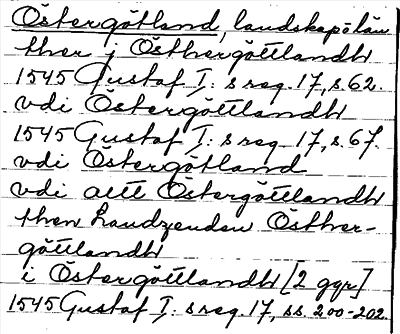 Östergötland, landskap o län
ther j Östhergöttlandh
1545 Gustaf I: s reg. 17, s. 62.
vdi Östergöttlandh
1545 Gustaf I: s reg. 17, s. 67.
vdi Östergötland
vdi altt Östergöttlandh
then landzenden Östher-
göttlandh
i Östergöttlandh [2 ggr]
1545 Gustaf I: s reg. 17, ss. 200-202.